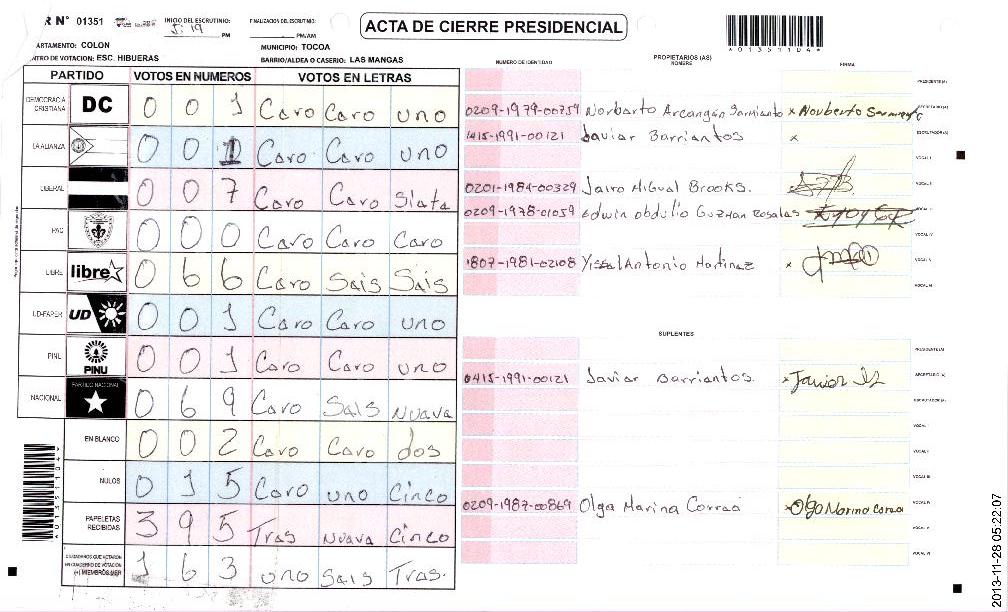 R N° 01351
INICIO DEL ESCRUTINIO:
5:19 PM
FINALIZACION DEL ESCRUTINIO:
PM/AM
ACTA DE CIERRE PRESIDENCIAL
A01351104A
ARTAMENTO: COLON
MUNICIPIO: TOCOA
NTRO DE VOTACION: ESC. HIBUERAS
BARRIO/ALDEA O CASERIO: LAS MANGAS
PARTIDO VOTOS EN NUMEROS VOTOS EN LETRAS
DEMOCRACIA CRISTIANA DC 0 0 1 Caro Caro uno
LA ALIANZA 0 0 1 Caro Caro uno
LIBERAL 0 0 7 Caro Caro Siata
PAC 0 0 0 Caro Caro Caro
LIBRE libre 0 6 6 Caro Sais Sais
UD-FAPER UD 0 0 1 Caro Caro uno
PINU PINU 0 0 1 Caro Caro uno
NACIONAL PARTIDO NACIONAL 0 6 9 Caro Sais Nuava
EN BLANCO 0 0 2 Caro Caro dos
NULOS 0 1 5 Caro uno Cinco
PAPELETAS RECIBIDAS 3 9 5 Tras Nuava Cinco
CIUDADANOS QUE VOTARON EN CUADERNO DE VOTACION (+) MIEMBROS MER 1 6 3 uno Sais Tras.
A01351104A
NUMERO DE IDENTIDAD
PROPIETARIOS (AS)
NOMBRE
FIRMA
PRESIDENTE(A)
0209-1979-00759 Norberto Arcangan Sarmianto x Norberto Sarmiento SECRETARIO(A)
1415-1991-00121 Javiar Barriantos x ESCRUTADOR(A)
VOCAL I
0201-1984-00329 Jairo Migual Brooks. VOCAL II
0209-1978-01059 Edwin obdulio Guzman Rosalas VOCAL III
VOCAL IV
1807-1981-02108 Yissal Antonio Martinaz x VOCAL V
VOCAL VI
SUPLENTES
PRESIDENTE(A)
0415-1991-00121 Javiar Barriantos x Javier SECRETARIO(A)
ESCRUTADOR(A)
VOCAL I
VOCAL II
VOCAL III
0209-1987-00869 Olga Marina Corraa x Olga Marina Correa VOCAL IV
VOCAL V
VOCAL VI
2013-11-28 05:22:07